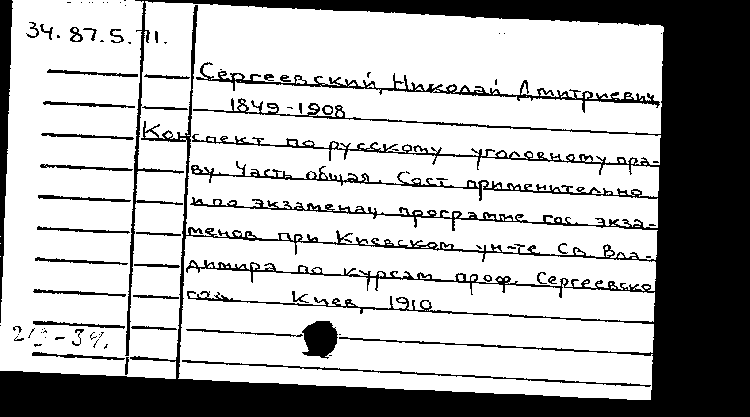 34. 87.5. 71.
Сергеевский, Николай Дмитриевич,
1849-1908.
Конспект по русскому уголовному пра-
ву. Часть общая. Сост. применительно
и по экзаменац. программе гос. экза-
менов при Киевском ун-те Св. Вла-
димира по курсам проф. Сергеевско
го
Киев, 1910.
-34.